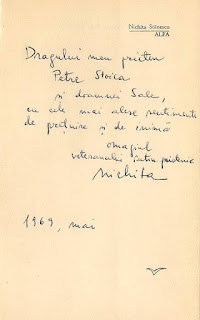 Nichita Stănescu
ALFA
Dragului meu prieten
Petre Stoica
și doamnei Sale,
cu cele mai alese sentimente
de prețuire și de inimă
omagiul
veteranului întru prietenie
Nichita
1969, mai